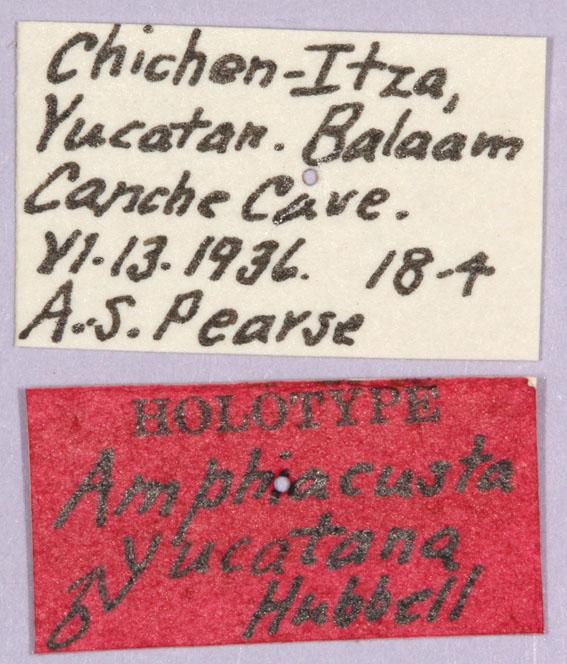 Chichen-Itza,
Yucatan. Balaam
Canche Cave.
VI-13-1936. 18-4
A.S. Pearse
HOLOTYPE
Amphiacusta
yucatana
♂ Hubbell